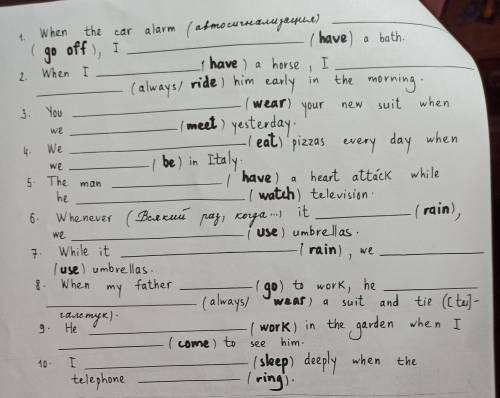 1. When the car alarm (автосигнализация) ____________
(go off), I ____________ (have) a bath.
2. When I ____________ (have) a horse, I ____________
____________ (always/ride) him early in the morning.
3. You ____________ (wear) your new suit when
we ____________ (meet) yesterday.
4. We ____________ (eat) pizzas every day when
we ____________ (be) in Italy.
5. The man ____________ (have) a heart attáck while
he ____________ (watch) television.
6. Whenever (Всякий раз, когда...) it ____________ (rain),
we ____________ (use) umbrellas.
7. While it ____________ (rain), we ____________
(use) umbrellas.
8. When my father ____________ (go) to work, he ____________
____________ (always/wear) a suit and tie ([taı]-
галстук).
9. He ____________ (work) in the garden when I
____________ (come) to see him.
10. I ____________ (sleep) deeply when the
telephone ____________ (ring).